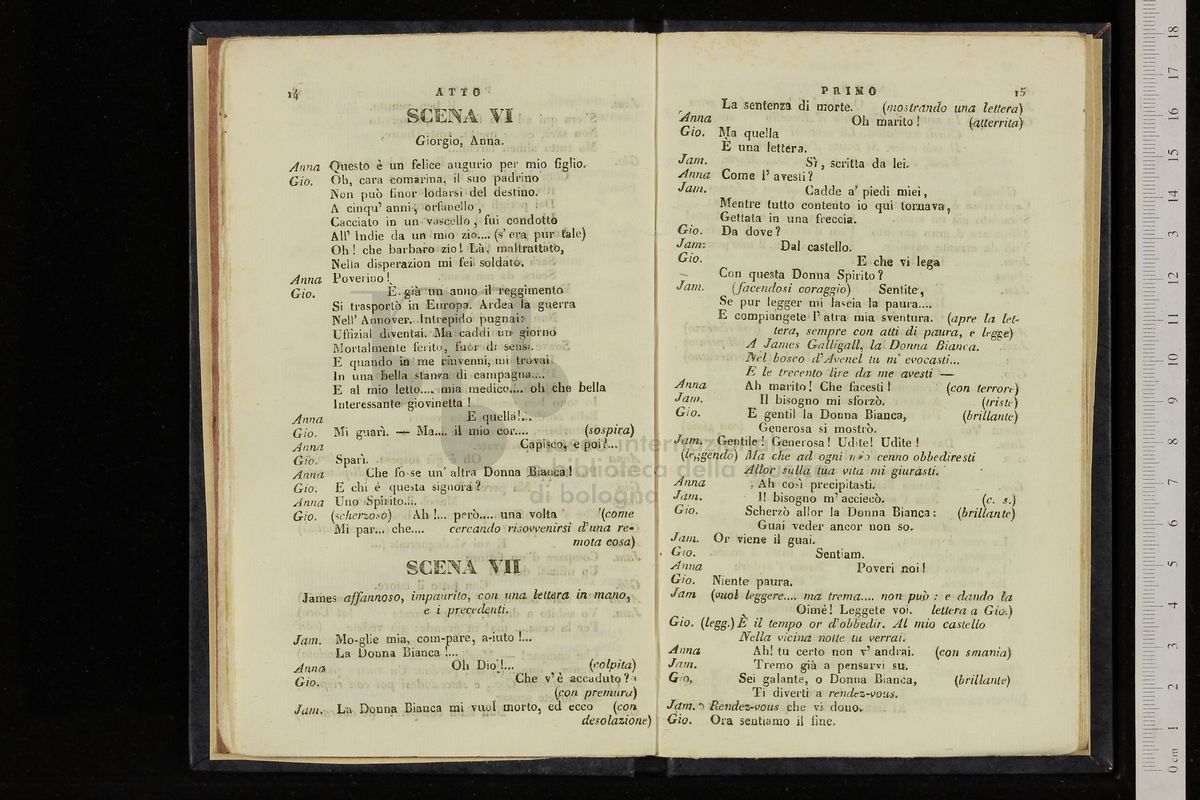 14 ATTO
SCENA VI
Giorgio, Anna.
Anna Questo è un felice augurio per mio figlio.
Gio. Oh, cara comarina, il suo padrino
Non può finor lodarsi del destino.
A cinqu' anni, orfanello,
Cacciato in un vascello, fui condotto
All' Indie da un mio zio.... (s' era pur tale)
Oh! che barbaro zio! Là, maltrattato,
Nella disperazion mi fei soldato.
Anna Poverino!
Gio. E già un anno il reggimento
Si trasportò in Europa. Ardea la guerra
Nell' Annover. Intrepido pugnai:
Uffizial diventai. Ma caddi un giorno
Mortalmente ferito, fuor di sensi.
E quando in me rinvenni, mi trovai
In una bella stanza di campagna....
E al mio letto.... mia medico.... oh che bella
Interessante giovinetta!
Anna E quella!...
Gio. Mi guarì. — Ma.... il mio cor.... (sospira)
Anna Capisco, e poi?...
Gio. Sparì.
Anna Che fosse un' altra Donna Bianca!
Gio. E chi è questa signora?
Anna Uno Spirito....
Gio. (scherzoso) Ah!... però.... una volta (come
Mi par... che.... cercando risovvenirsi d'una re-
mota cosa)
SCENA VII
James affannoso, impaurito, con una lettera in mano,
e i precedenti.
Jam. Mo-glie mia, com-pare, a-iuto!...
La Donna Bianca!...
Anna Oh Dio!... (colpita)
Gio. Che v' è accaduto?
(con premura)
Jam. La Donna Bianca mi vuol morto, ed ecco (con
desolazione)
PRIMO 15
La sentenza di morte. (mostrando una lettera)
Anna Oh marito! (atterrita)
Gio. Ma quella
È una lettera.
Jam. Sì, scritta da lei.
Anna Come l' avesti?
Jam. Cadde a' piedi miei,
Mentre tutto contento io qui tornava,
Gettata in una freccia.
Gio. Da dove?
Jam. Dal castello.
Gio. E che vi lega
Con questa Donna Spirito?
Jam. (facendosi coraggio) Sentite,
Se pur legger mi lascia la paura....
E compiangete l' atra mia sventura. (apre la let-
tera, sempre con atti di paura, e legge)
A James Galligall, la Donna Bianca.
Nel bosco d'Avenel tu m' evocasti...
E le trecento lire da me avesti —
Anna Ah marito! Che facesti! (con terrore)
Jam. Il bisogno mi sforzò. (triste)
Gio. E gentil la Donna Bianca, (brillante)
Generosa si mostrò.
Jam. Gentile! Generosa! Udite! Udite!
(leggendo) Ma che ad ogni mio cenno obbediresti
Allor sulla tua vita mi giurasti.
Anna Ah così precipitasti.
Jam. Il bisogno m' acciecò. (c. s.)
Gio. Scherzò allor la Donna Bianca: (brillante)
Guai veder ancor non so.
Jam. Or viene il guai.
Gio. Sentiam.
Anna Poveri noi!
Gio. Niente paura.
Jam (vuol leggere.... ma trema.... non può: e dando la
Oimè! Leggete voi. lettera a Gio.)
Gio. (legg.) È il tempo or d'obbedir. Al mio castello
Nella vicina notte tu verrai.
Anna Ah! tu certo non v' andrai. (con smania)
Jam. Tremo già a pensarvi su.
Gio. Sei galante, o Donna Bianca, (brillante)
Ti diverti a rendez-vous.
Jam. Rendez-vous che vi dono.
Gio. Ora sentiamo il fine.
biblioteca della
di bologna
0 cm 1 2 3 4 5 6 7 8 9 10 11 12 13 14 15 16 17 18